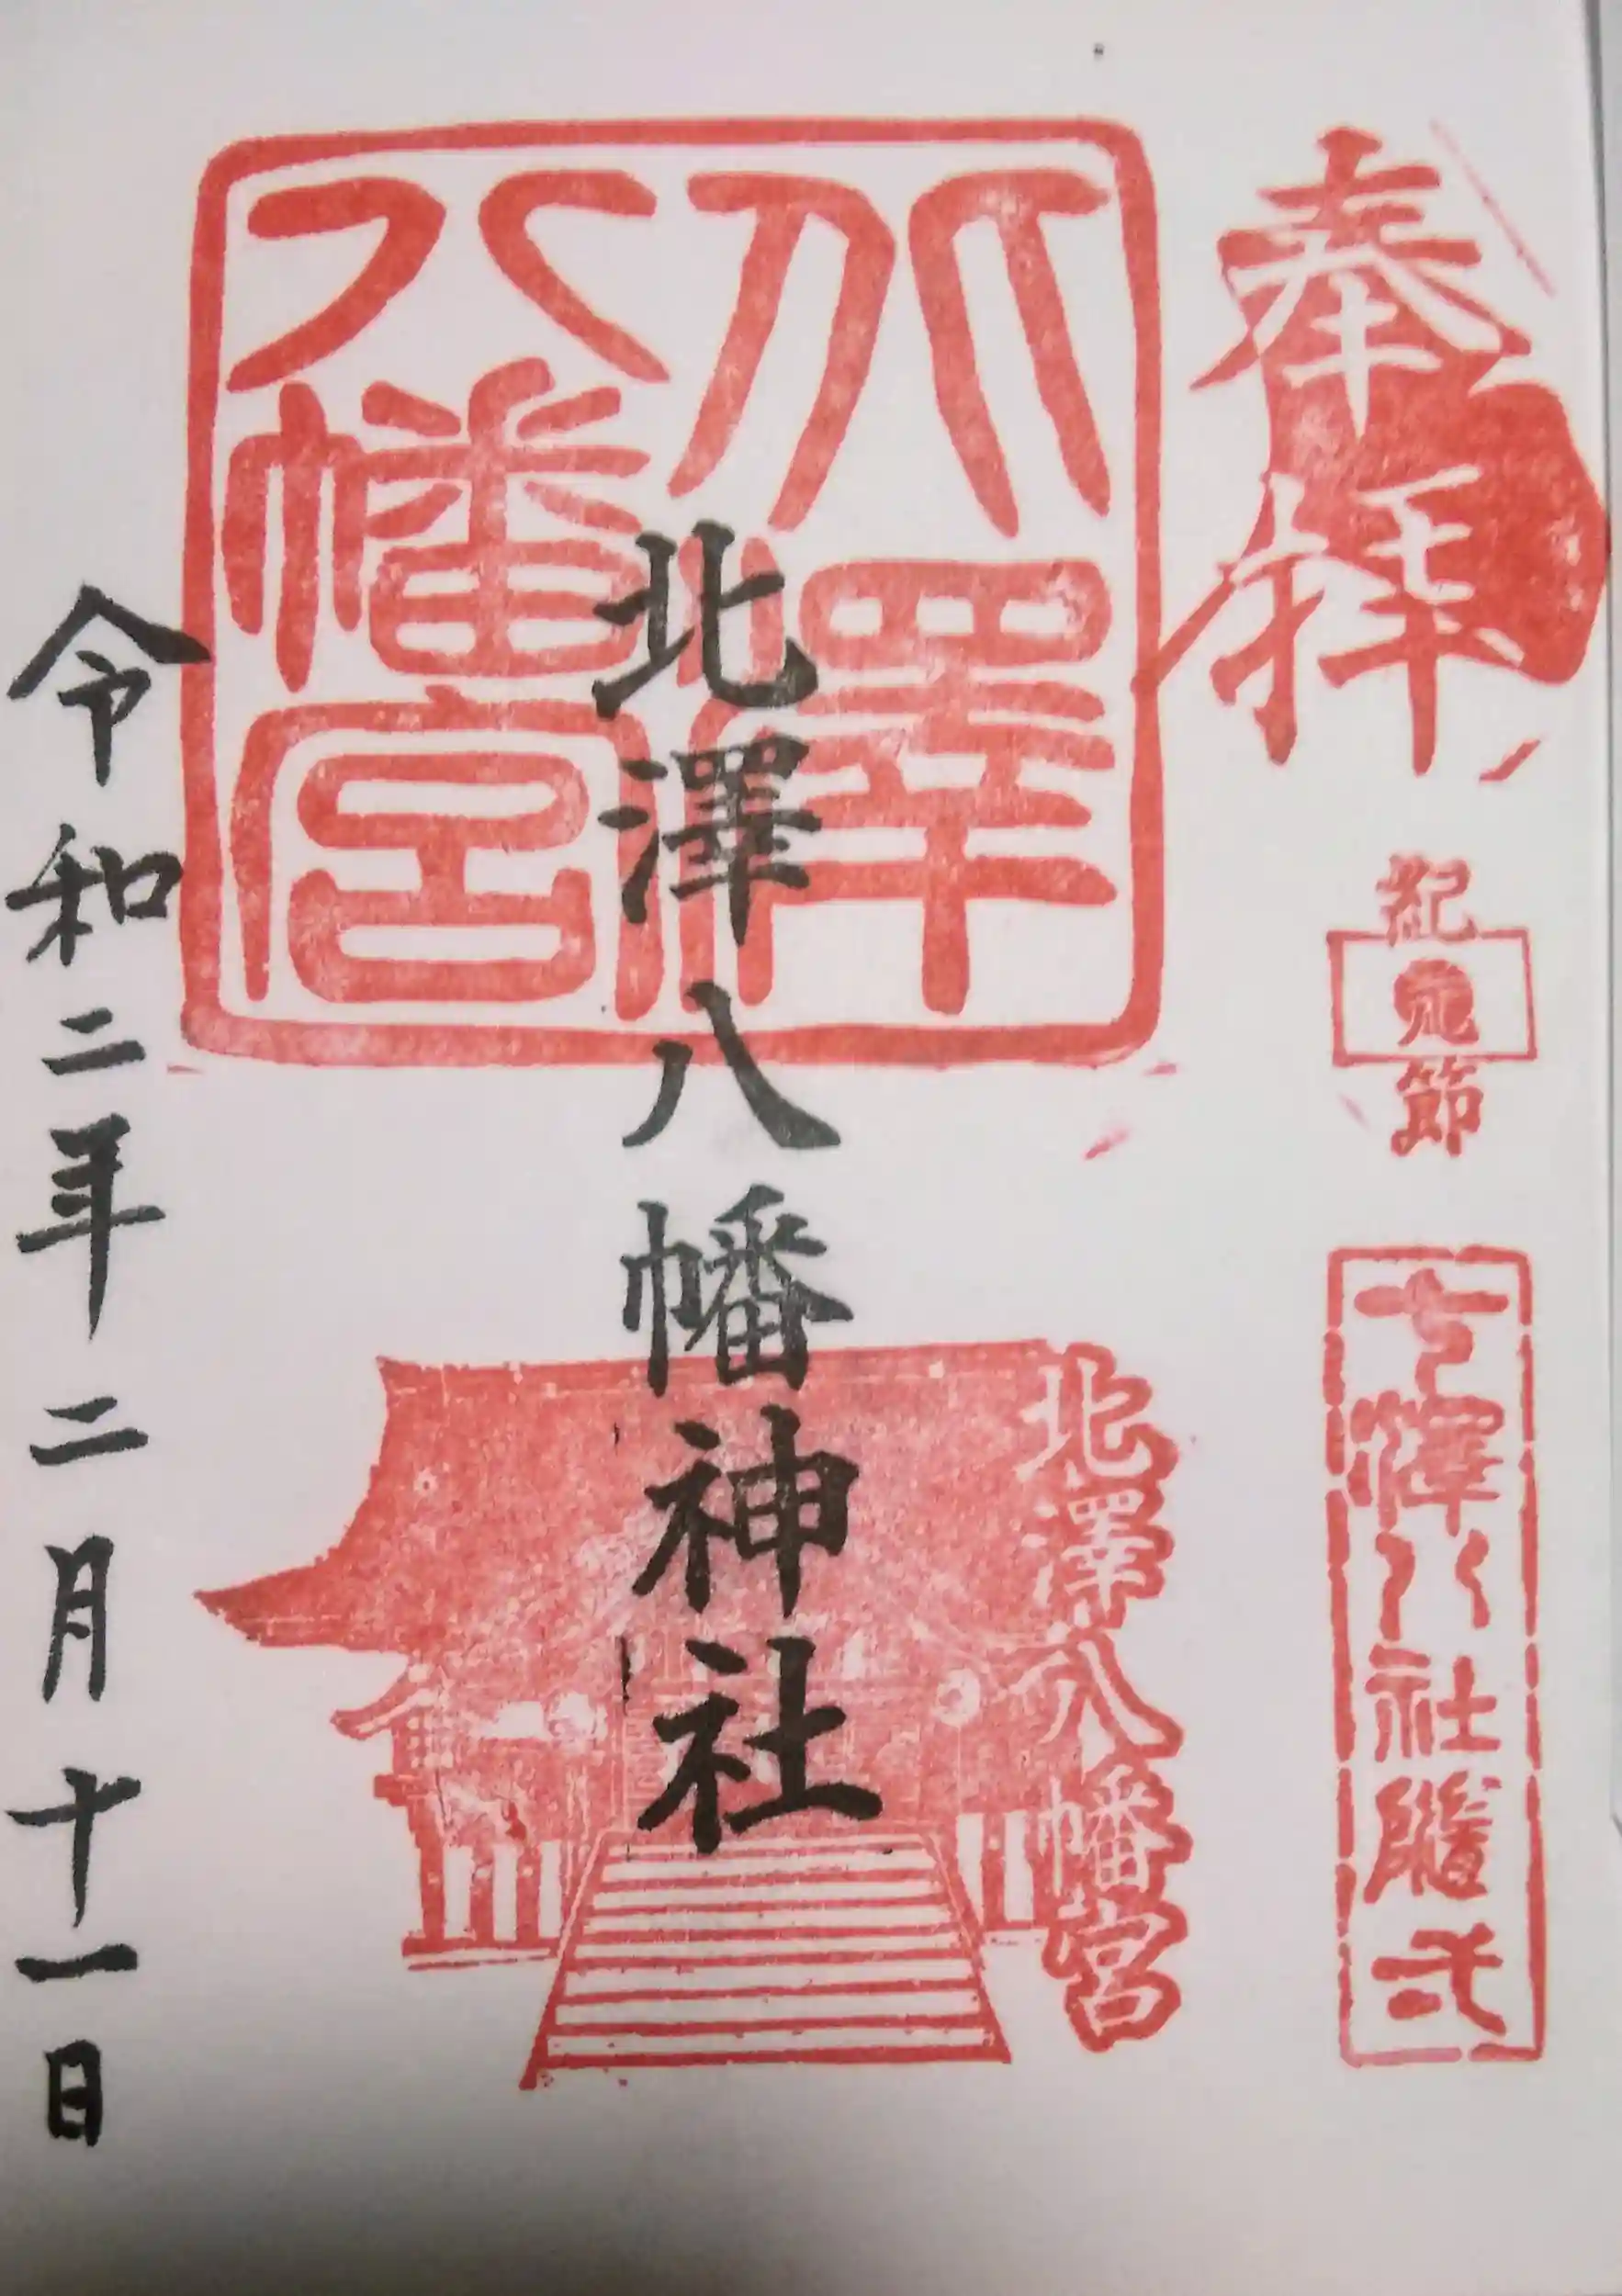 奉拝
紀元節
七澤八社隨弌
北澤八幡宮
北澤八幡宮
北澤八幡神社
令和二年二月十一日